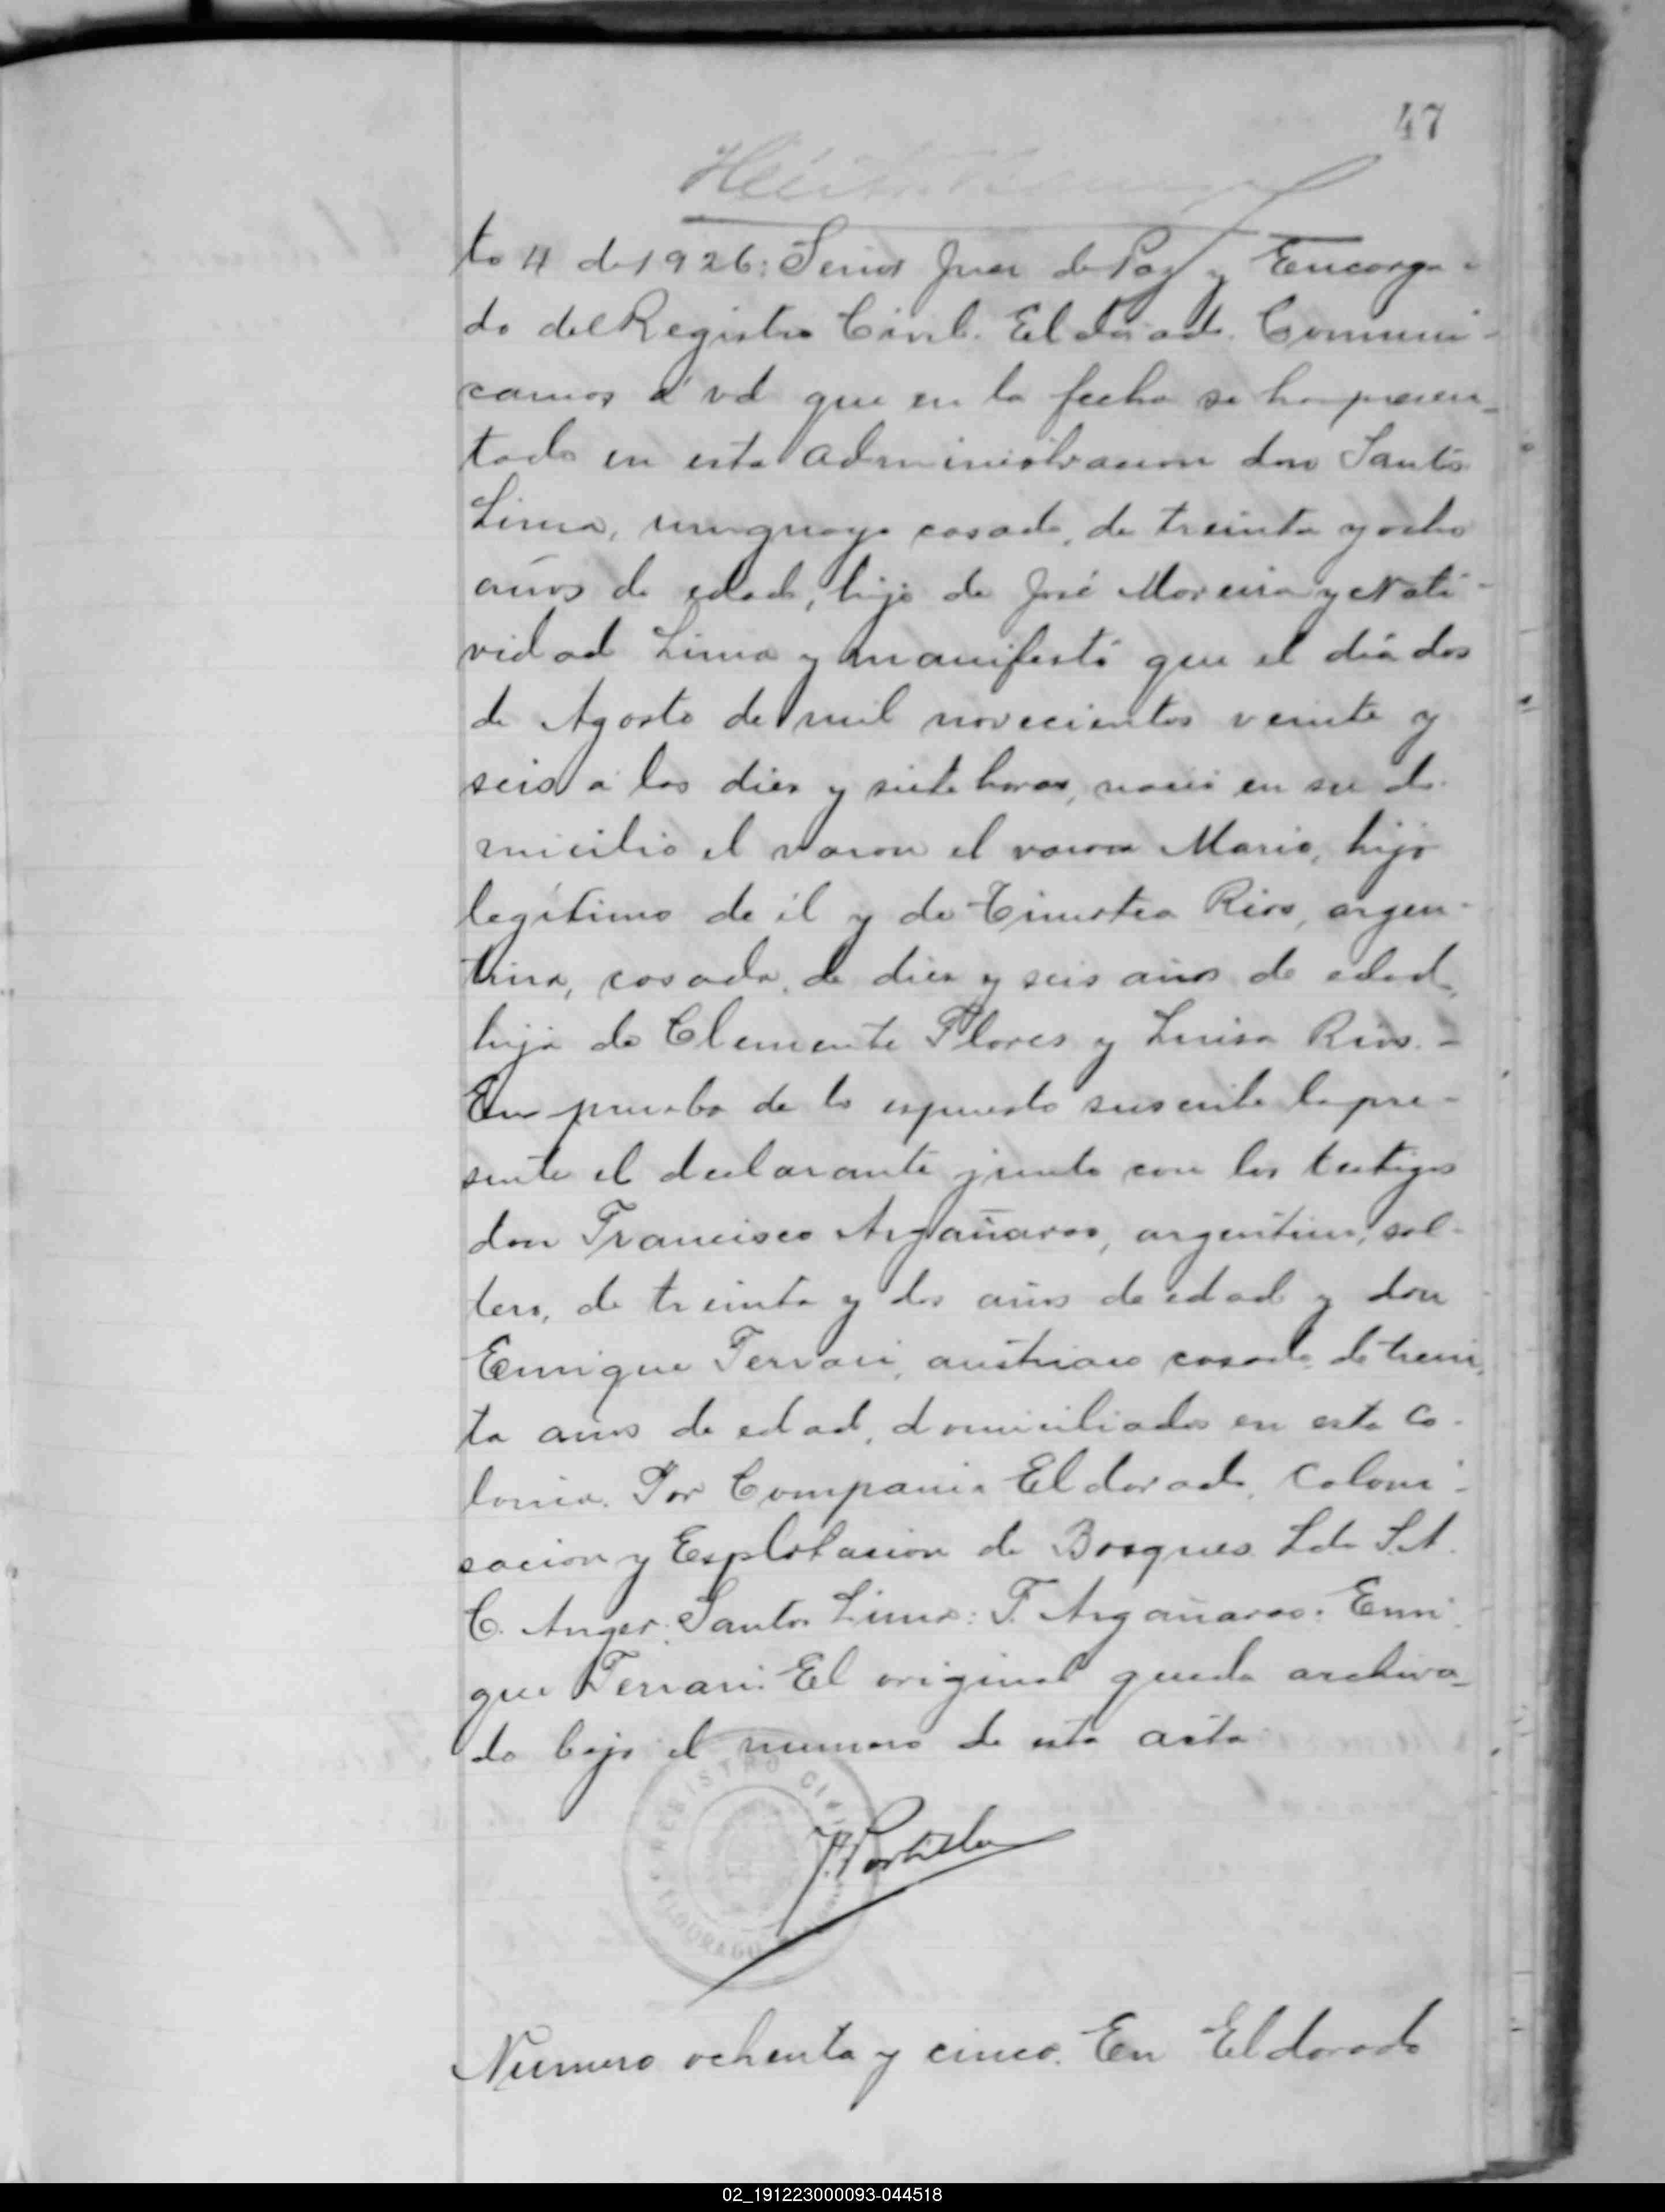 47
to 4 de 1926: Señor Juez de Paz y Encarga-
do del Registro Civil. Eldorado. Comuni-
camos á vd que en la fecha se ha presen-
tado en esta administracion don Santos
Lima, uruguayo casado, de treinta y ocho
años de edad, hijo de José Moreira y Nati-
vidad Lima y manifestó que el dia dos
de Agosto de mil novecientos veinte y
seis á las diez y siete horas, nació en su do-
micilio el varon el varon Mario, hijo
legítimo de él y de Timotea Rios, argen-
tina, casada, de diez y seis años de edad,
hija de Clemente Flores y Luisa Rios. -
En prueba de lo espuesto suscribe la pre-
sente el declarante junto con los testigos
don Francisco Argañaras, argentino, sol-
tero, de treinta y dos años de edad y don
Enrique Ferrari, austriaco casado de trein-
ta años de edad, domiciliados en esta Co-
lonia. Por Compania Eldorado, Coloni-
sacion y Esplotacion de Bosques Lda S.A.
C. Anger: Santos Lima: F. Argañaras: Enri-
que Ferrari: El original queda archiva-
do bajo el numero de esta acta
REGISTRO CIVIL
ELDORADO
J. Portillo
Numero ochenta y cinco. En Eldorado
02_191223000093-044518